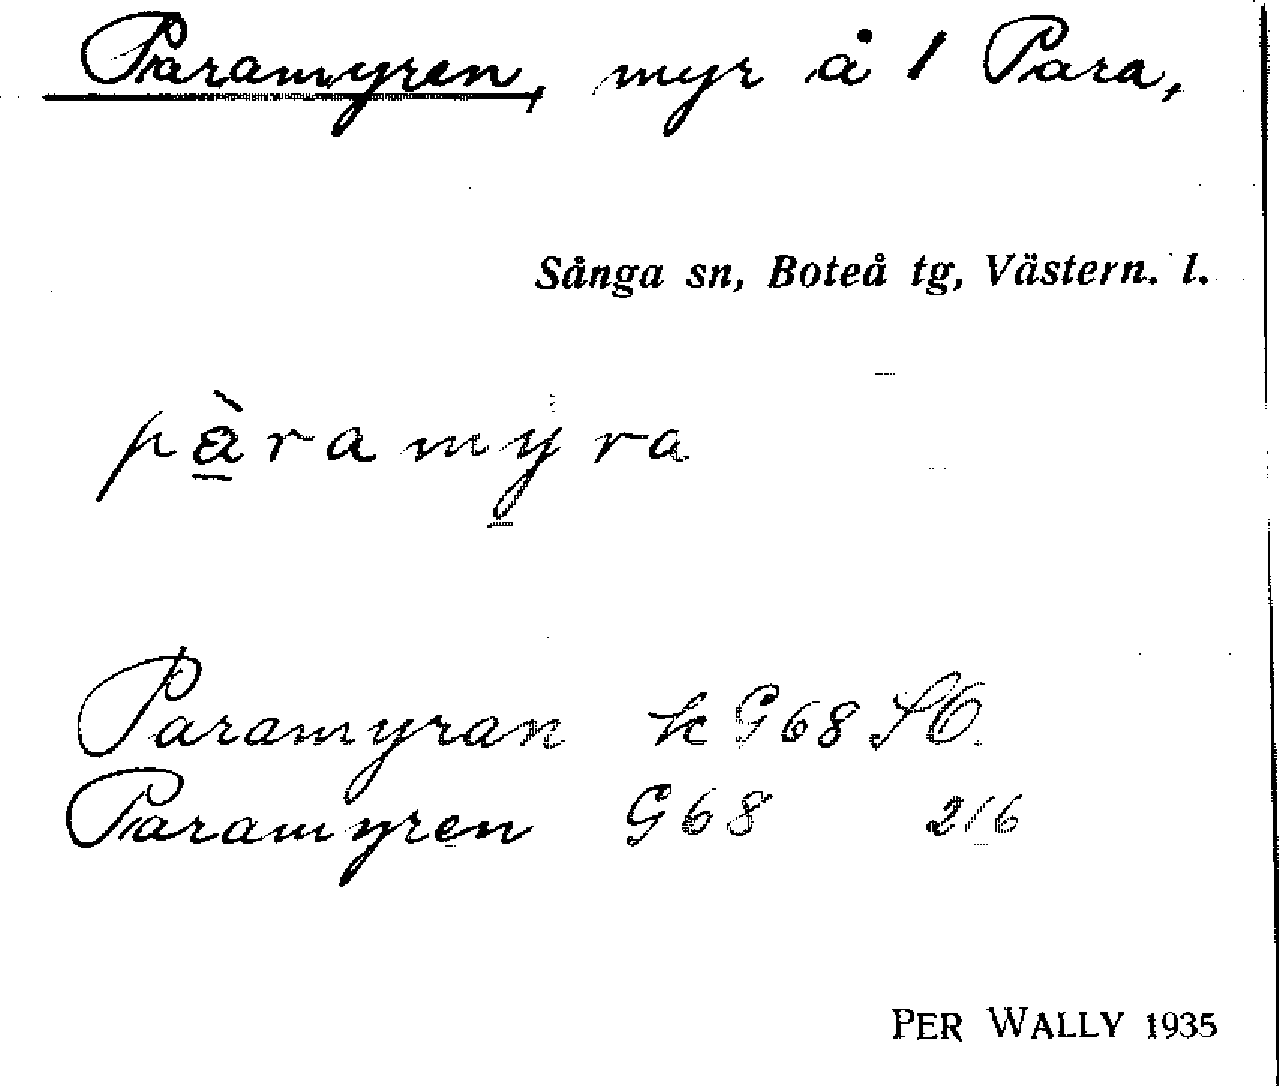 Paramyren, myr å 1 Para,
Sånga sn, Boteå tg, Västern. l.
pàramyra
Paramyran k G68
Paramyren G68 216
PER WALLY 1935